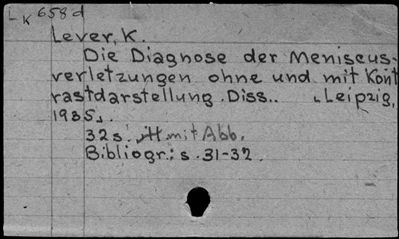 LK 658d
Lever, K.
Die Diagnose der Meniscus-
verletzungen ohne und mit Kont
rastdarstellung. Diss.. Leipzig,
1935.
32 s. mit Abb.
Bibliogr.: s. 31-32.